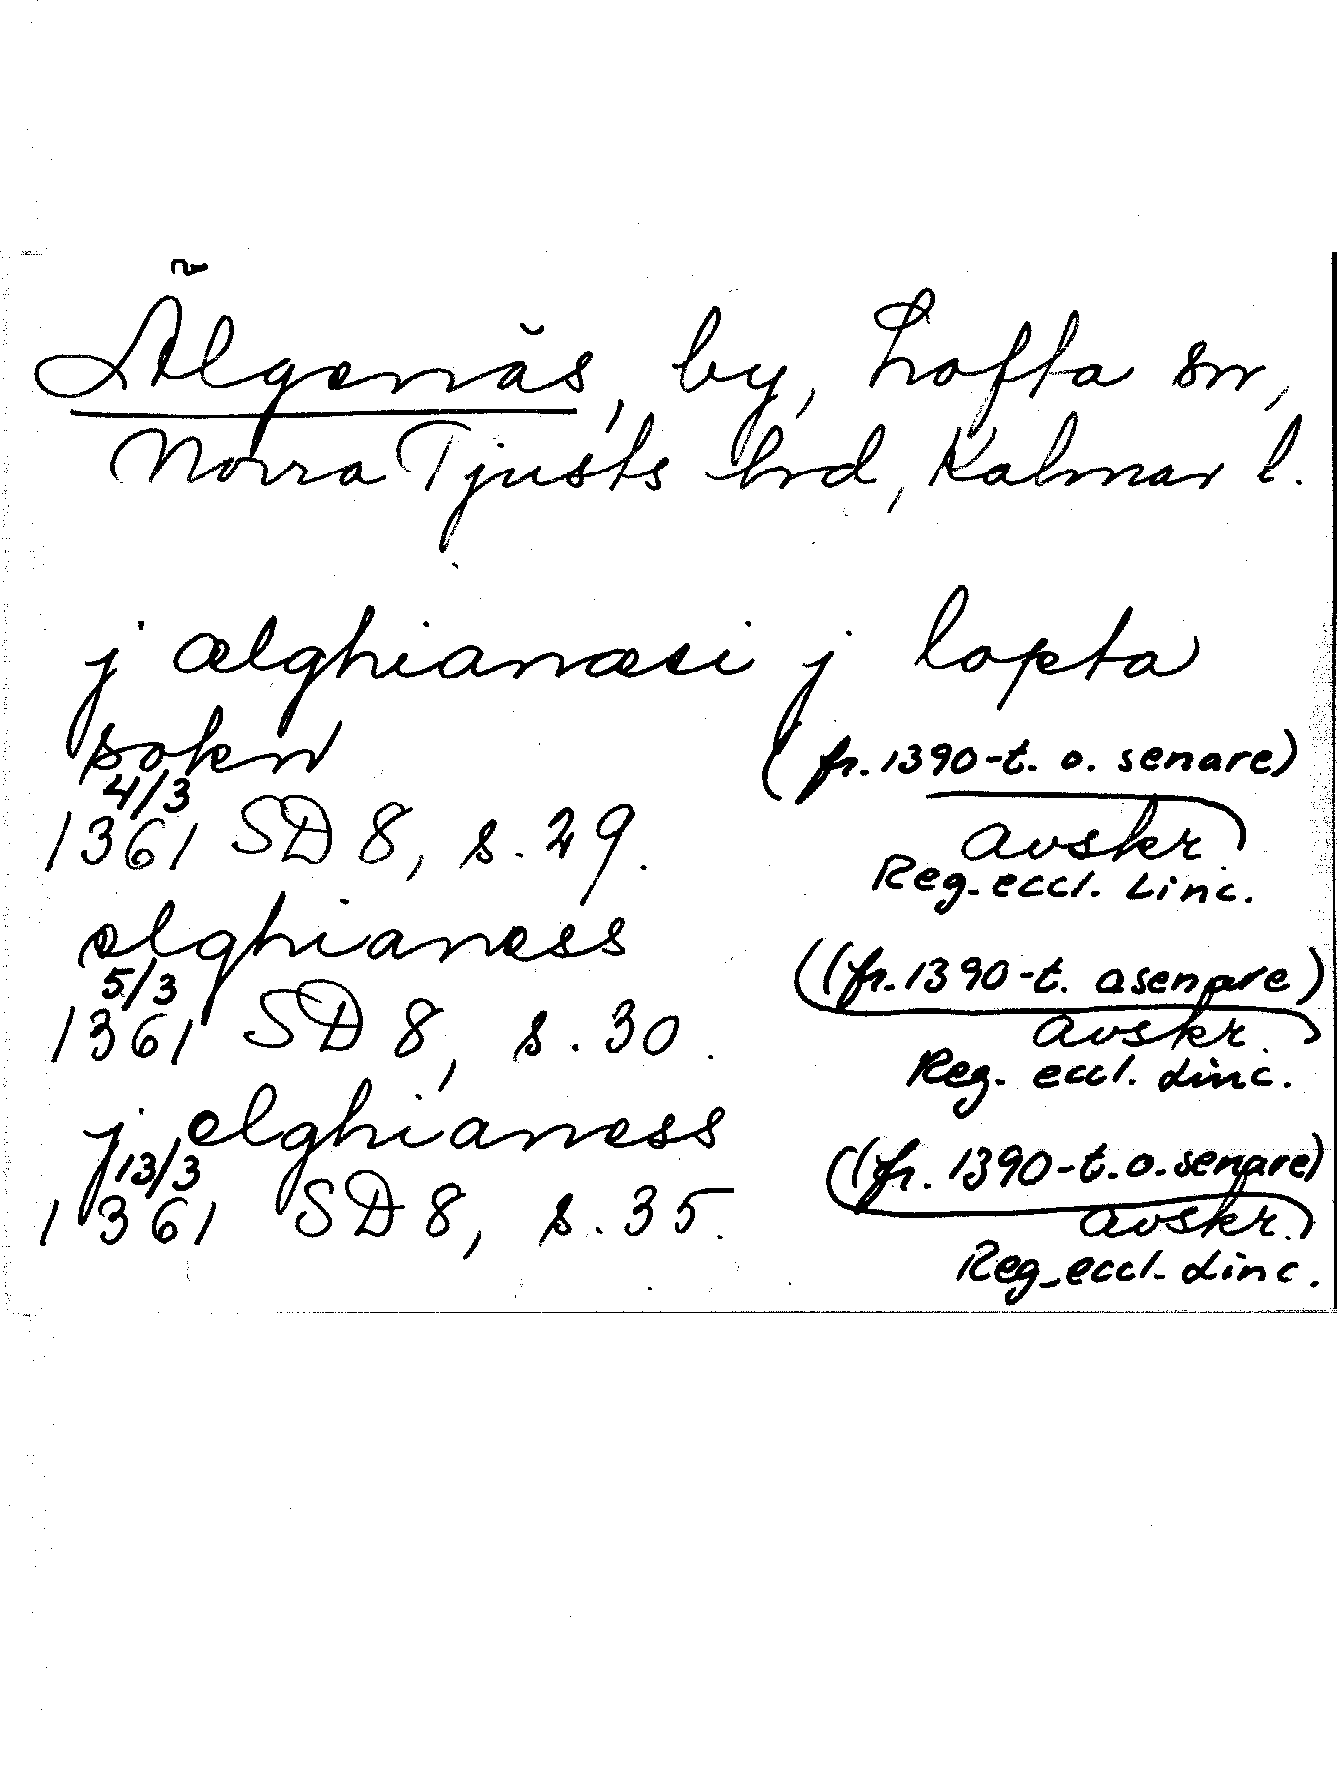 Älgenäs, by, Lofta sn,
Norra Tjusts hrd, Kalmar l.
j ælghianæsi j lopta
sokn (fr. 1390-t. o. senare)
4/3
1361 SD 8, s. 29. avskr.
Reg. eccl. Linc.
elghianess
5/3 (fr. 1390-t. o senare)
1361 SD 8, s. 30. avskr.
Reg. eccl. Linc.
j elghianess
13/3 (fr. 1390-t. o. senare)
1361 SD 8, s. 35. avskr.
Reg. eccl. Linc.